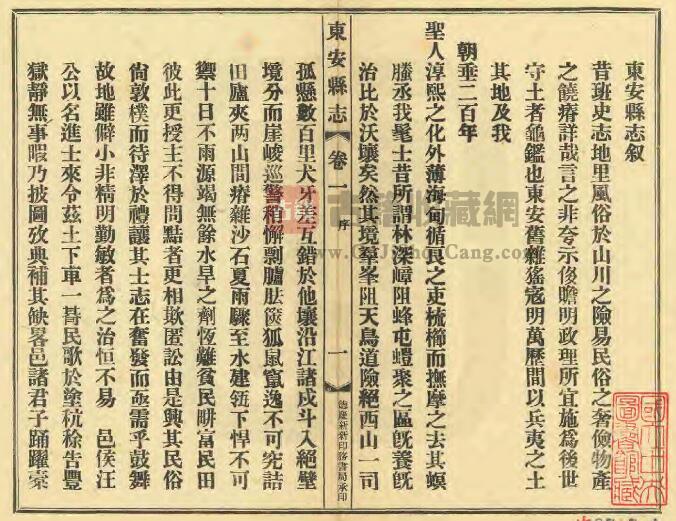 東安縣志叙
昔班史志地里風俗於山川之險易民俗之奢儉物產
之饒瘠詳哉言之非夸示俊瞻明政理所宜施為後世
守土者龜鑑也東安舊雜猺寇明萬歷間以兵夷之土
其地及我
朝垂二百年
聖人淳熙之化外薄海甸循良之吏梳櫛而撫摩之去其螟
螣丞我髦士昔所謂林深嶂阻蜂屯螘聚之區旣養旣
治比於沃壤矣然其境羣峯阻天鳥道險絕西山一司
東安縣志 卷一 序 一
德慶新新印務書局承印
孤懸數百里犬牙差互錯於他壤沿江諸戍斗入絕壁
境分而崖峻巡警稍懈剽臚胠篋狐鼠竄逸不可究詰
田廬夾兩山間瘠雜沙石夏雨驟至水建瓴下悍不可
禦十日不雨源竭無餘水旱之劑恆難貧民畊富民田
彼此更授主不得問黠者更相欺匿訟由是興其民俗
尙敦樸而待澤於禮讓其士志在奮發而亟需乎鼓舞
故地雖僻小非精明勤敏者為之治恒不易 邑侯汪
公以名進士來令茲土下車一朞民歌於塗秔稌告豐
獄靜無事暇乃披圖攷典補其缺畧邑諸君子踊躍橐
古籍收藏網